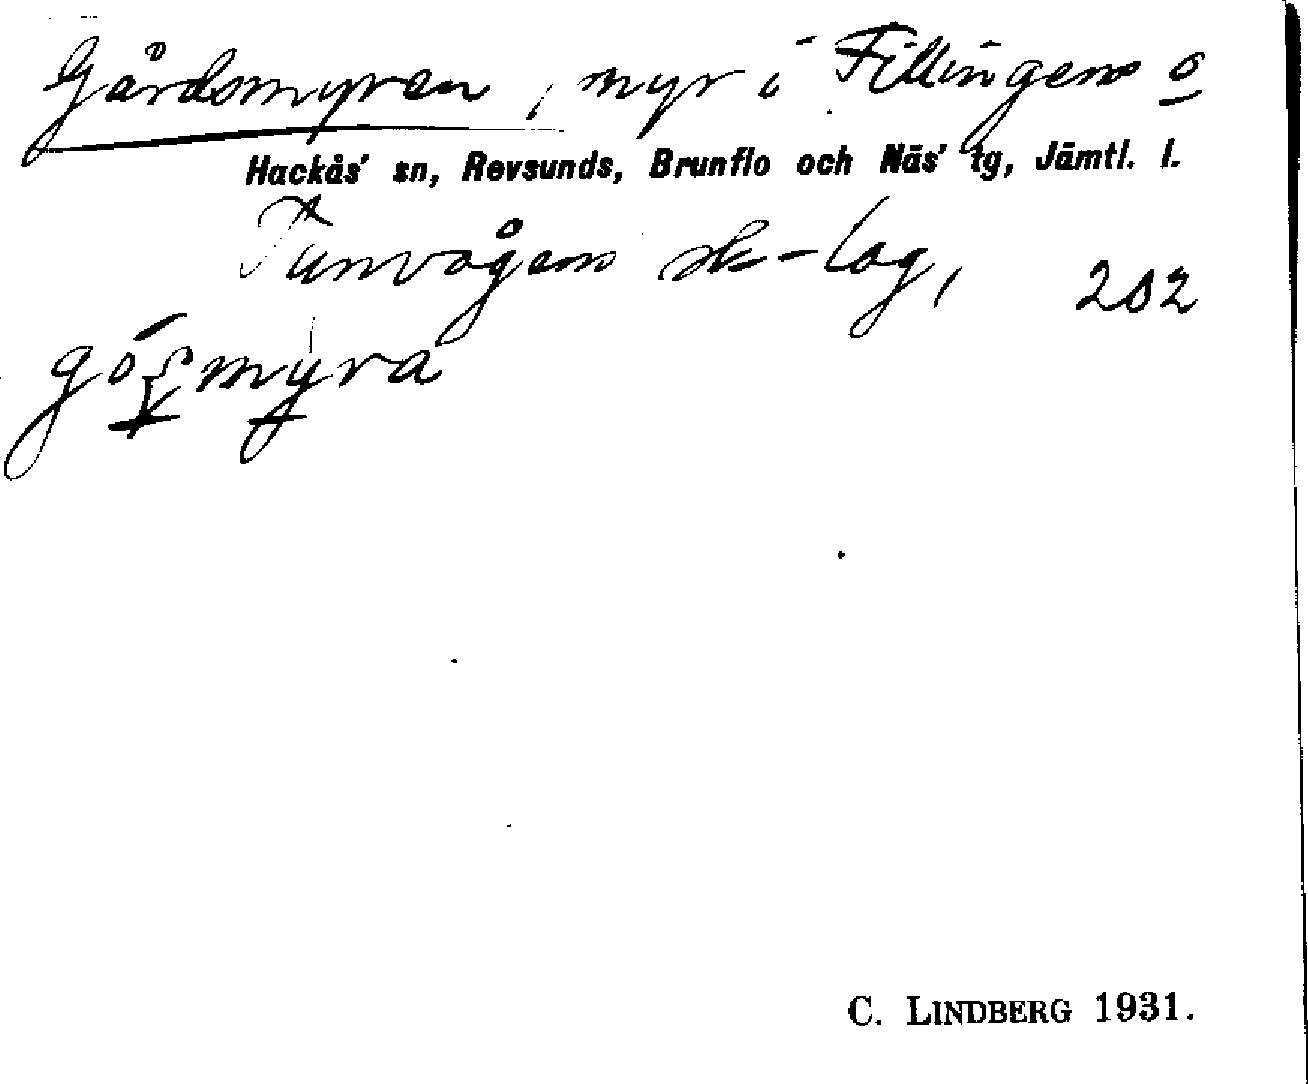 Gårdsmyren, myr i Fillingens o
Hackås' sn, Revsunds, Brunflo och Näs' tg, Jämtl. l.
Tunvågens sk-lag, 202
C. LINDBERG 1931.